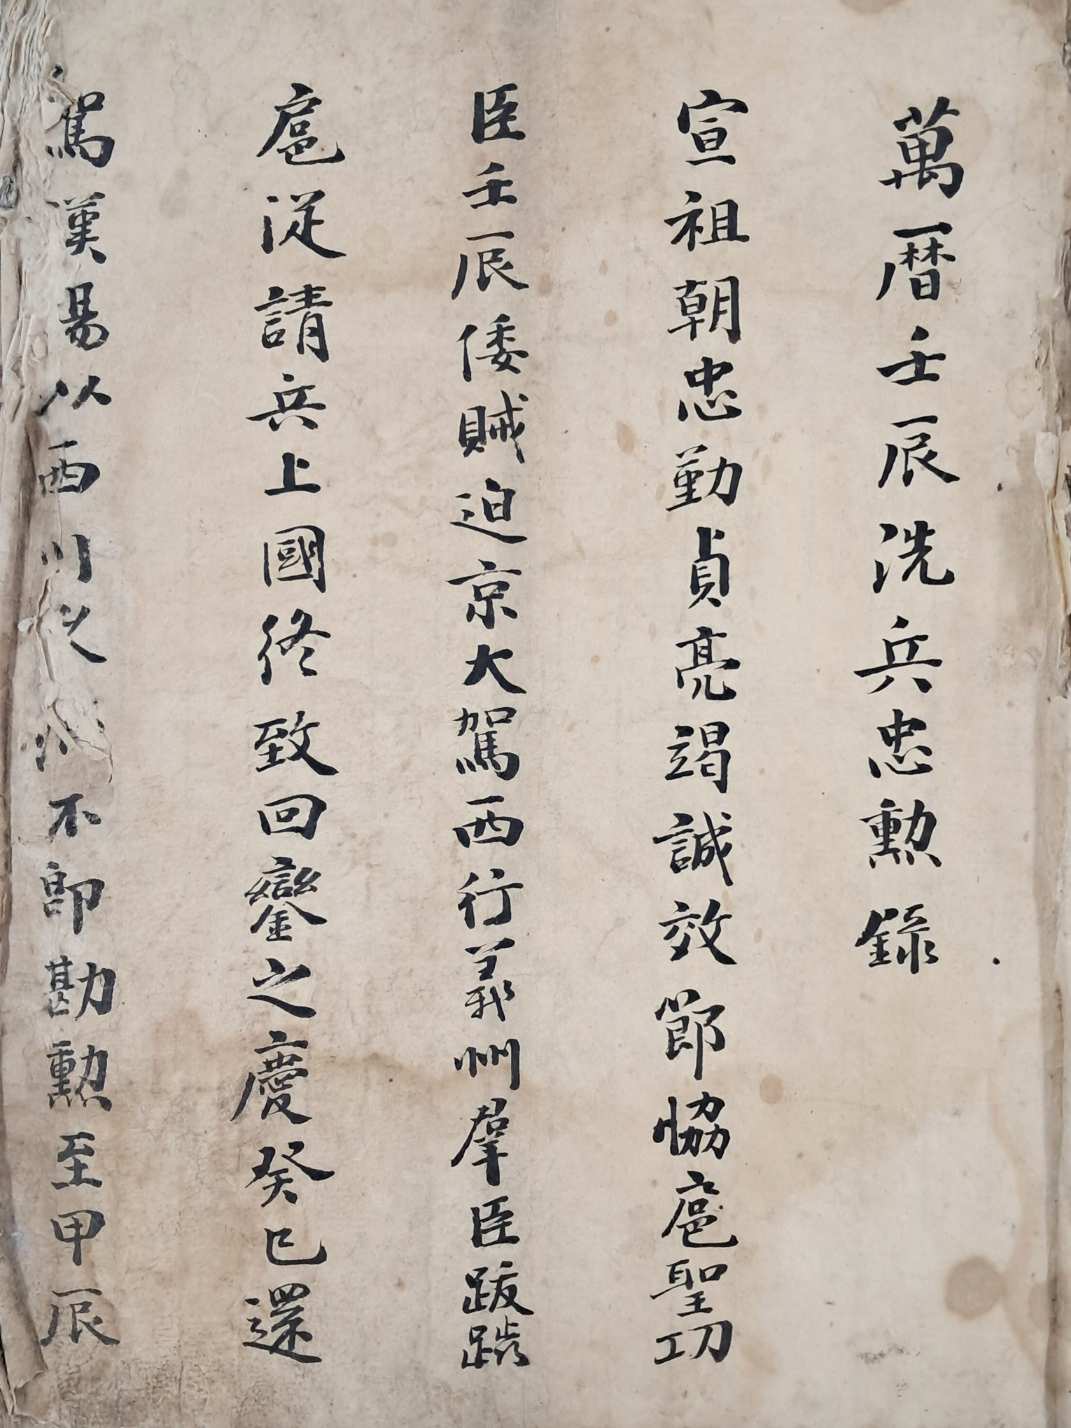 萬暦壬辰洗兵忠勲錄
宣祖朝忠勤貞亮竭誠效節恊扈聖功
臣壬辰倭賊迫京大駕西行義州羣臣跋踄
扈從請兵上國終致回鑾之慶癸巳還
駕漢昜以西川之不即勘勲至甲辰